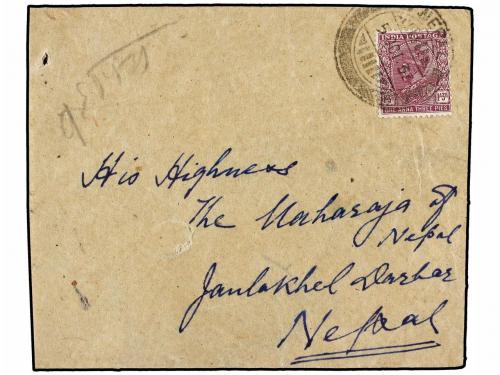 INDIA POSTAGE
ONE ANNA THREE PIES
His Highness
The Maharaja of
Nepal
Jaulakhel Darbar
Nepal